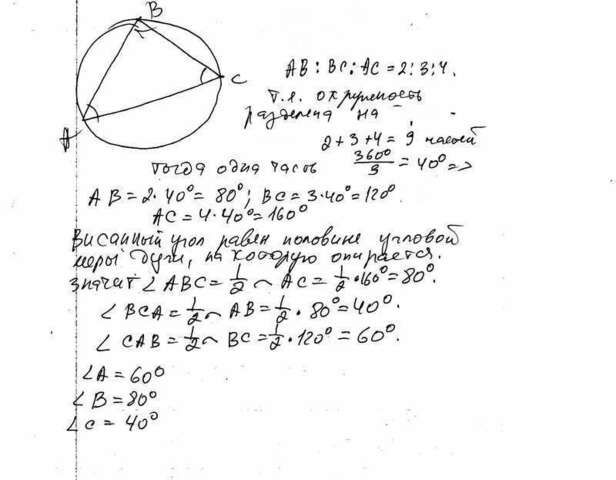 B
C
A
AB : BC : AC = 2 : 3 : 4.
т.е. окружность
разделена на
2 + 3 + 4 = 9 частей
Тогда одна часть 360°/9 = 40° =>
AB = 2·40° = 80°; BC = 3·40° = 120°.
AC = 4·40° = 160°
Вписанный угол равен половине угловой
меры дуги, на которую опирается.
Значит ∠ABC = 1/2 ◡ AC = 1/2·160° = 80°.
∠BCA = 1/2 ◡ AB = 1/2 · 80° = 40°.
∠CAB = 1/2 ◡ BC = 1/2·120° = 60°.
∠A = 60°
∠B = 80°
∠C = 40°